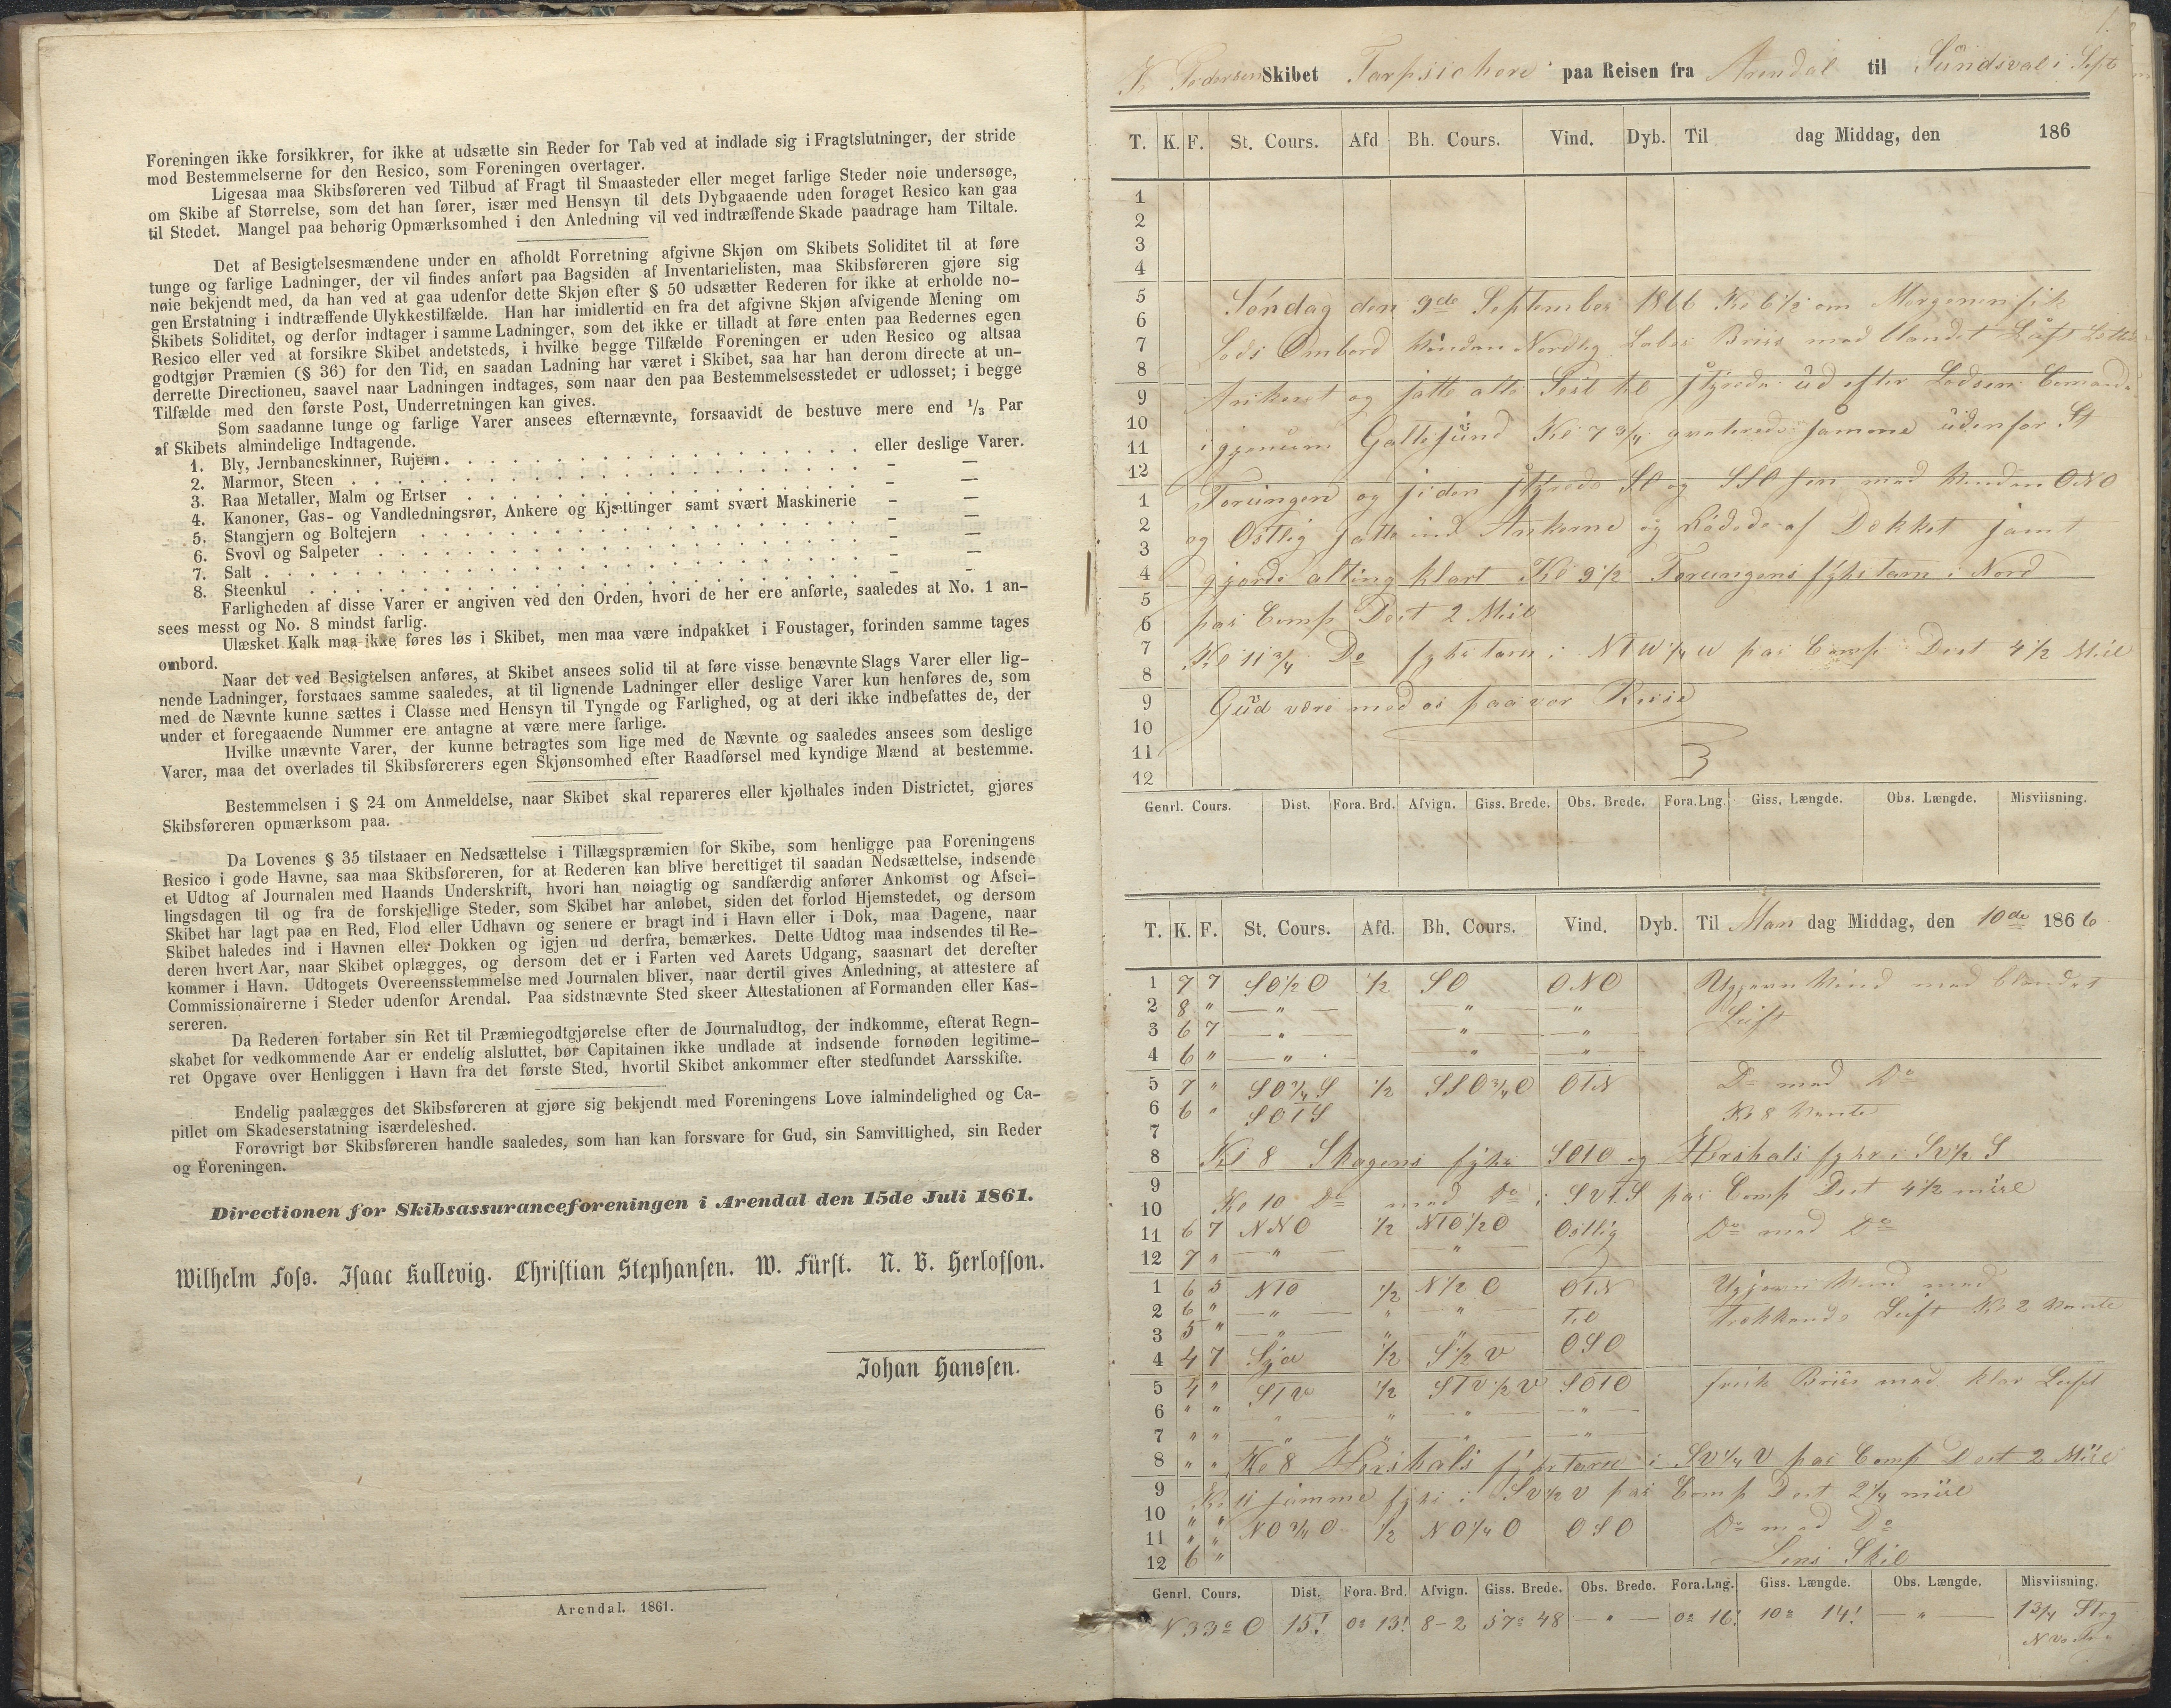 Foreningen ikke forsikkrer, for ikke at udsætte sin Reder for Tab ved at indlade sig i Fragtslutninger, der stride
mod Bestemmelserne for den Resico, som Foreningen overtager.
Ligesaa maa Skibsføreren ved Tilbud af Fragt til Smaasteder eller meget farlige Steder nøie undersøge,
om Skibe af Størrelse, som det han fører, især med Hensyn til dets Dybgaaende uden forøget Resico kan gaa
til Stedet. Mangel paa behørig Opmærksomhed i den Anledning vil ved indtræffende Skade paadrage ham Tiltale.
Det af Besigtelsesmændene under en afholdt Forretning afgivne Skjøn om Skibets Soliditet til at føre
tunge og farlige Ladninger, der vil findes anført paa Bagsiden af Inventarielisten, maa Skibsføreren gjøre sig
nøie bekjendt med, da han ved at gaa udenfor dette Skjøn efter § 50 udsætter Rederen for ikke at erholde no-
gen Erstatning i indtræffende Ulykkestilfælde. Han har imidlertid en fra det afgivne Skjøn afvigende Mening om
Skibets Soliditet, og derfor indtager i samme Ladninger, som det ikke er tilladt at føre enten paa Redernes egen
Resico eller ved at forsikre Skibet andetsteds, i hvilke begge Tilfælde Foreningen er uden Resico og altsaa
godtgjør Præmien (§ 36) for den Tid, en saadan Ladning har været i Skibet, saa har han derom directe at un-
derrette Directionen, saavel naar Ladningen indtages, som naar den paa Bestemmelsesstedet er udlosset; i begge
Tilfælde med den første Post, Underretningen kan gives.
Som saadanne tunge og farlige Varer ansees efternævnte, forsaavidt de bestuve mere end 1/3 Par
af Skibets almindelige Indtagende.
1. Bly, Jernbaneskinner, Rujern . . . eller deslige Varer.
2. Marmor, Steen . . . – —
3. Raa Metaller, Malm og Ertser . . . – —
4. Kanoner, Gas- og Vandledningsrør, Ankere og Kjættinger samt svært Maskinerie – —
5. Stangjern og Boltejern . . . – —
6. Svovl og Salpeter . . . – —
7. Salt . . . – —
8. Steenkul . . . – –
Farligheden af disse Varer er angiven ved den Orden, hvori de her ere anførte, saaledes at No. 1 an-
sees messt og No. 8 mindst farlig.
Ulæsket Kalk maa ikke føres løs i Skibet, men maa være indpakket i Foustager, forinden samme tages
ombord.
Naar det ved Besigtelsen anføres, at Skibet ansees solid til at føre visse benævnte Slags Varer eller lig-
nende Ladninger, forstaaes samme saaledes, at til lignende Ladninger eller deslige Varer kun henføres de, som
med de Nævnte kunne sættes i Classe med Hensyn til Tyngde og Farlighed, og at deri ikke indbefattes de, der
under et foregaaende Nummer ere antagne at være mere farlige.
Hvilke unævnte Varer, der kunne betragtes som lige med de Nævnte og saaledes ansees som deslige
Varer, maa det overlades til Skibsførerers egen Skjønsomhed efter Raadførsel med kyndige Mænd at bestemme.
Bestemmelsen i § 24 om Anmeldelse, naar Skibet skal repareres eller kjølhales inden Districtet, gjøres
Skibsføreren opmærksom paa.
Da Lovenes § 35 tilstaaer en Nedsættelse i Tillægspræmien for Skibe, som henligge paa Foreningens
Resico i gode Havne, saa maa Skibsføreren, for at Rederen kan blive berettiget til saadan Nedsættelse, indsende
et Udtog af Journalen med Haands Underskrift, hvori han nøiagtig og sandfærdig anfører Ankomst og Afsei-
lingsdagen til og fra de forskjellige Steder, som Skibet har anløbet, siden det forlod Hjemstedet, og dersom
Skibet har lagt paa en Red, Flod eller Udhavn og senere er bragt ind i Havn eller i Dok, maa Dagene, naar
Skibet haledes ind i Havnen eller Dokken og igjen ud derfra, bemærkes. Dette Udtog maa indsendes til Re-
deren hvert Aar, naar Skibet oplægges, og dersom det er i Farten ved Aarets Udgang, saasnart det derefter
kommer i Havn. Udtogets Overeensstemmelse med Journalen bliver, naar dertil gives Anledning, at attestere af
Commissionairerne i Steder udenfor Arendal. Paa sidstnævnte Sted skeer Attestationen af Formanden eller Kas-
sereren.
Da Rederen fortaber sin Ret til Præmiegodtgjørelse efter de Journaludtog, der indkomme, efterat Regn-
skabet for vedkommende Aar er endelig alsluttet, bør Capitainen ikke undlade at indsende fornøden legitime-
ret Opgave over Henliggen i Havn fra det første Sted, hvortil Skibet ankommer efter stedfundet Aarsskifte.
Endelig paalægges det Skibsføreren at gjøre sig bekjendt med Foreningens Love ialmindelighed og Ca-
pitlet om Skadeserstatning isærdeleshed.
Forøvrigt bør Skibsføreren handle saaledes, som han kan forsvare for Gud, sin Samvittighed, sin Reder
og Foreningen.
Directionen for Skibsassuranceforeningen i Arendal den 15de Juli 1861.
Wilhelm Foss. Isaac Kallevig. Christian Stephansen. W. Fürst. N. B. Herlofson.
Johan Hanssen.
Arendal. 1861.
Pedersen Skibet Tarpsichore paa Reisen fra Arendal til Sundsval i Sept
T. K. F. St. Cours. Afd Bh. Cours. Vind. Dyb. Til dag Middag, den 186
1
2
3
4
5 Søndag den 9de September 1866 Kl 6 1/2 om Morgenen fik
6
7 Lods Ombord Vinden Nordlig Laber Briis med blandet Luft
8
9 Ankeret og satte alle Seil til Styrede ud efter Lodsens
10 igjenum Galtesund Kl 7 3/4 samme udenfor St
11
12
1 Torungen og siden Styrede SO og SSO hen med Vinden ONO
2 og Ostlig satte ind Ankerne og af Dekket samt
3
4 gjorde alting klart Kl 9 1/2 Torungens fyhrtarn i Nord
5
6 paa Comp Dist 2 Miil
7 Kl 11 3/4 Do fyhrtarn i NTW 1/4 W paa Comp Dist 4 1/2 Miil
8
9 Gud være med os paa vor Reise
10
11
12
Genrl. Cours. Dist. Fora. Brd. Afvign. Giss. Brede. Obs. Brede. Fora. Lng. Giss. Længde. Obs. Længde. Misviisning.
T. K. F. St. Cours. Afd. Bh. Cours. Vind. Dyb. Til Man dag Middag, den 10de 1866
1 7 7 SO 1/2 O 1/2 SO ONO Ugjevn Vind med blandet
2 8 " — " — — " — — " — Luft
3 6 7 — " — — " — — " —
4 6 " — " — " "
5 7 " SO 3/4 S 1/2 SSO 3/4 O OTN Do med Do
6 6 " SOTS Kl 8 Vente
7
8 Kl 8 Skagens fyhr SOTO og Hirshals fyhr i SV 1/2 S
9
10 Kl 10 Do med Do i SVTS paa Comp Dist 4 1/2 miil
11 6 7 NNO 1/2 NTO 1/2 O Ostlig Do med Do
12 7 " — " — — " —
1 6 5 NTO 1/2 N 1/2 O OTN Ugjevn Vind med
2 6 " — " — " — " — Til Trækkende Luft Kl 2 Vente
3 5 " — " — " "
4 4 7 1/2 S 1/2 V OSO
5 4 " STV 1/2 STV 1/2 V SOTO frisk Briis med klar Luft
6 " " " — " — " — — " —
7 " " — " — " — " — — " —
8 " " Kl 8 Hirshals fyhrtarn i SV 1/4 V paa Comp Dist 2 Miil
9 Kl 11 samme fyhr i SV 1/2 V paa Comp Dist 2 1/4 miil
10 " "
11 " " NO 3/4 O 1/2 NO 1/4 O OSO Do med Do
12 6 " Lens Skib
Genrl. Cours. Dist. Fora. Brd. Afvign. Giss. Brede. Obs. Brede. Fora.Lng. Giss. Længde. Obs. Længde. Misviisning.
N 33° O 15' 0° 13' 8-2 57° 48 — " — 0° 16' 10° 14' — " — 1 3/4 Strg